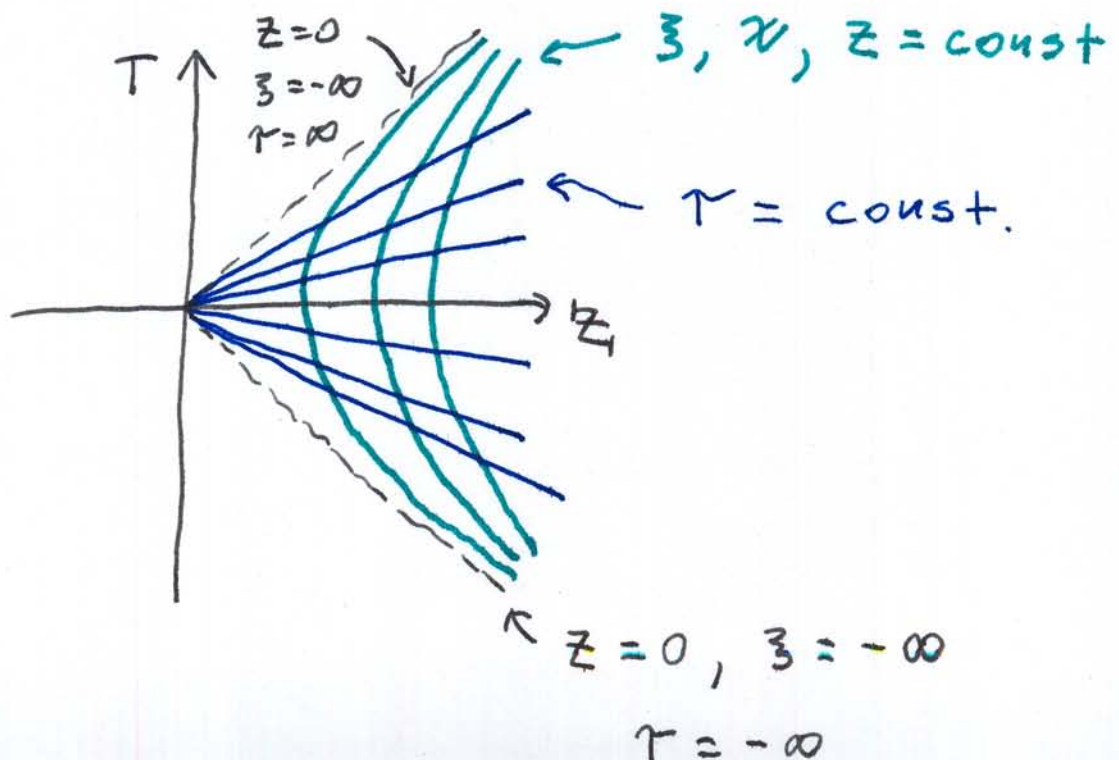 z=0
T
ξ=-∞
τ=∞
ξ, x, z = const
τ = const.
Z
z=0, ξ=-∞
τ=-∞